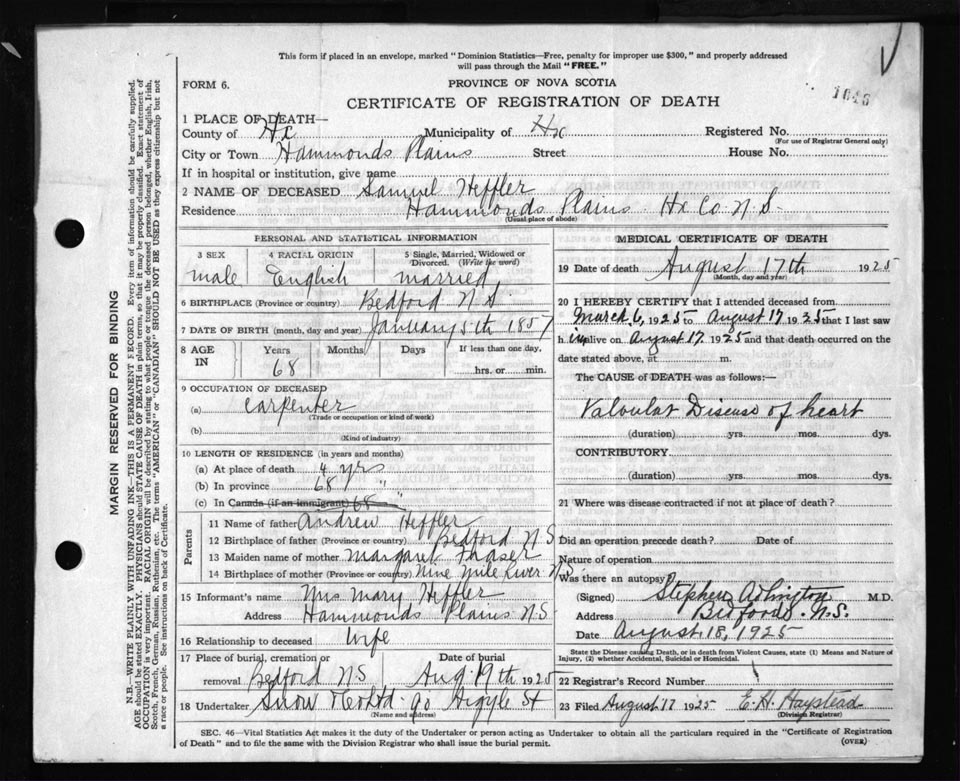 This form if placed in an envelope, marked "Dominion Statistics—Free, penalty for improper use $300," and properly addressed
will pass through the Mail "FREE."
FORM 6.
PROVINCE OF NOVA SCOTIA
CERTIFICATE OF REGISTRATION OF DEATH
1 PLACE OF DEATH—
County of Hx Municipality of Hx Registered No.
(For use of Registrar General only)
City or Town Hammonds Plains Street House No.
If in hospital or institution, give name
2 NAME OF DECEASED Samuel Heffler
Residence Hammonds Plains Hx Co. N.S.
(Usual place of abode)
PERSONAL AND STATISTICAL INFORMATION
3 SEX male
4 RACIAL ORIGIN English
5 Single, Married, Widowed or Divorced. (Write the word) married
6 BIRTHPLACE (Province or country) Bedford N.S.
7 DATE OF BIRTH (month, day and year) January 5th 1857
8 AGE IN Years 68 Months Days If less than one day, hrs. or min.
9 OCCUPATION OF DECEASED
(a) carpenter
(Trade or occupation or kind of work)
(b)
(Kind of industry)
10 LENGTH OF RESIDENCE (in years and months)
(a) At place of death 4 yrs
(b) In province 68 "
(c) In Canada (if an immigrant) 68 "
Parents
11 Name of father Andrew Heffler
12 Birthplace of father (Province or country) Bedford N S
13 Maiden name of mother Margaret Fraser
14 Birthplace of mother (Province or country) Nine Mile River N.S.
15 Informant's name Mrs Mary Heffler
Address Hammonds Plains N.S.
16 Relationship to deceased Wife
17 Place of burial, cremation or removal Bedford N S Date of burial Aug. 19th 1925
18 Undertaker Snow & Co Ltd. 90 Argyle St
(Name and address)
MEDICAL CERTIFICATE OF DEATH
19 Date of death August 17th 1925
(Month, day and year)
20 I HEREBY CERTIFY that I attended deceased from
March 6, 1925 to August 17 1925 that I last saw
h im alive on August 17. 1925 and that death occurred on the
date stated above, at m.
The CAUSE OF DEATH was as follows:—
Valvular Disease of heart
(duration) yrs. mos. dys.
CONTRIBUTORY.
(duration) yrs. mos. dys.
21 Where was disease contracted if not at place of death?
Did an operation precede death? Date of
Nature of operation
Was there an autopsy
(Signed) Stephen M.D.
Address Bedford. N.S.
Date August 18, 1925
State the Disease causing Death, or in death from Violent Causes, state (1) Means and Nature of
Injury, (2) whether Accidental, Suicidal or Homicidal.
22 Registrar's Record Number
23 Filed August 17 1925 E. H. Haystead
(Division Registrar)
SEC. 46—Vital Statistics Act makes it the duty of the Undertaker or person acting as Undertaker to obtain all the particulars required in the "Certificate of Registration
of Death" and to file the same with the Division Registrar who shall issue the burial permit.
(OVER)
MARGIN RESERVED FOR BINDING
N.B.—WRITE PLAINLY WITH UNFADING INK—THIS IS A PERMANENT RECORD. Every item of information should be carefully supplied.
AGE should be stated EXACTLY. PHYSICIANS should STATE CAUSE OF DEATH in plain terms, so that it may be properly classified. Exact statement of
OCCUPATION is very important. RACIAL ORIGIN will be described by stating to what people or tongue the deceased person belonged, whether English, Irish,
Scotch, French, German, Russian, Ruthenian, etc. The terms "AMERICAN" or "CANADIAN" SHOULD NOT BE USED as they express citizenship but not
a race or people. See instructions on back of Certificate.